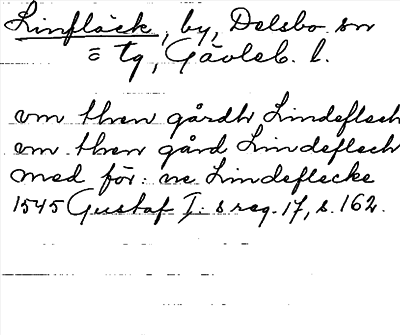 Linfläck, by, Delsbo sn
o tg, Gävleb. l.
vm then gårdh Lindeflech
vm then gård Lindeflech
med för: ne Lindeflecke
1545 Gustaf I:s reg. 17, s. 162.